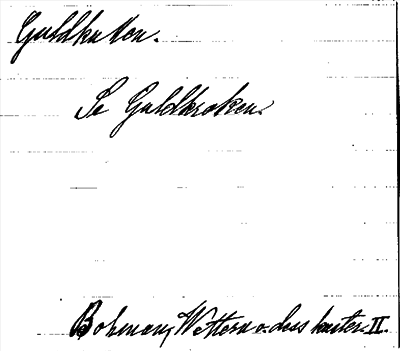 Guldkullen.
Se Guldkroken.
Bohman, Wettern o. dess kuster. II.